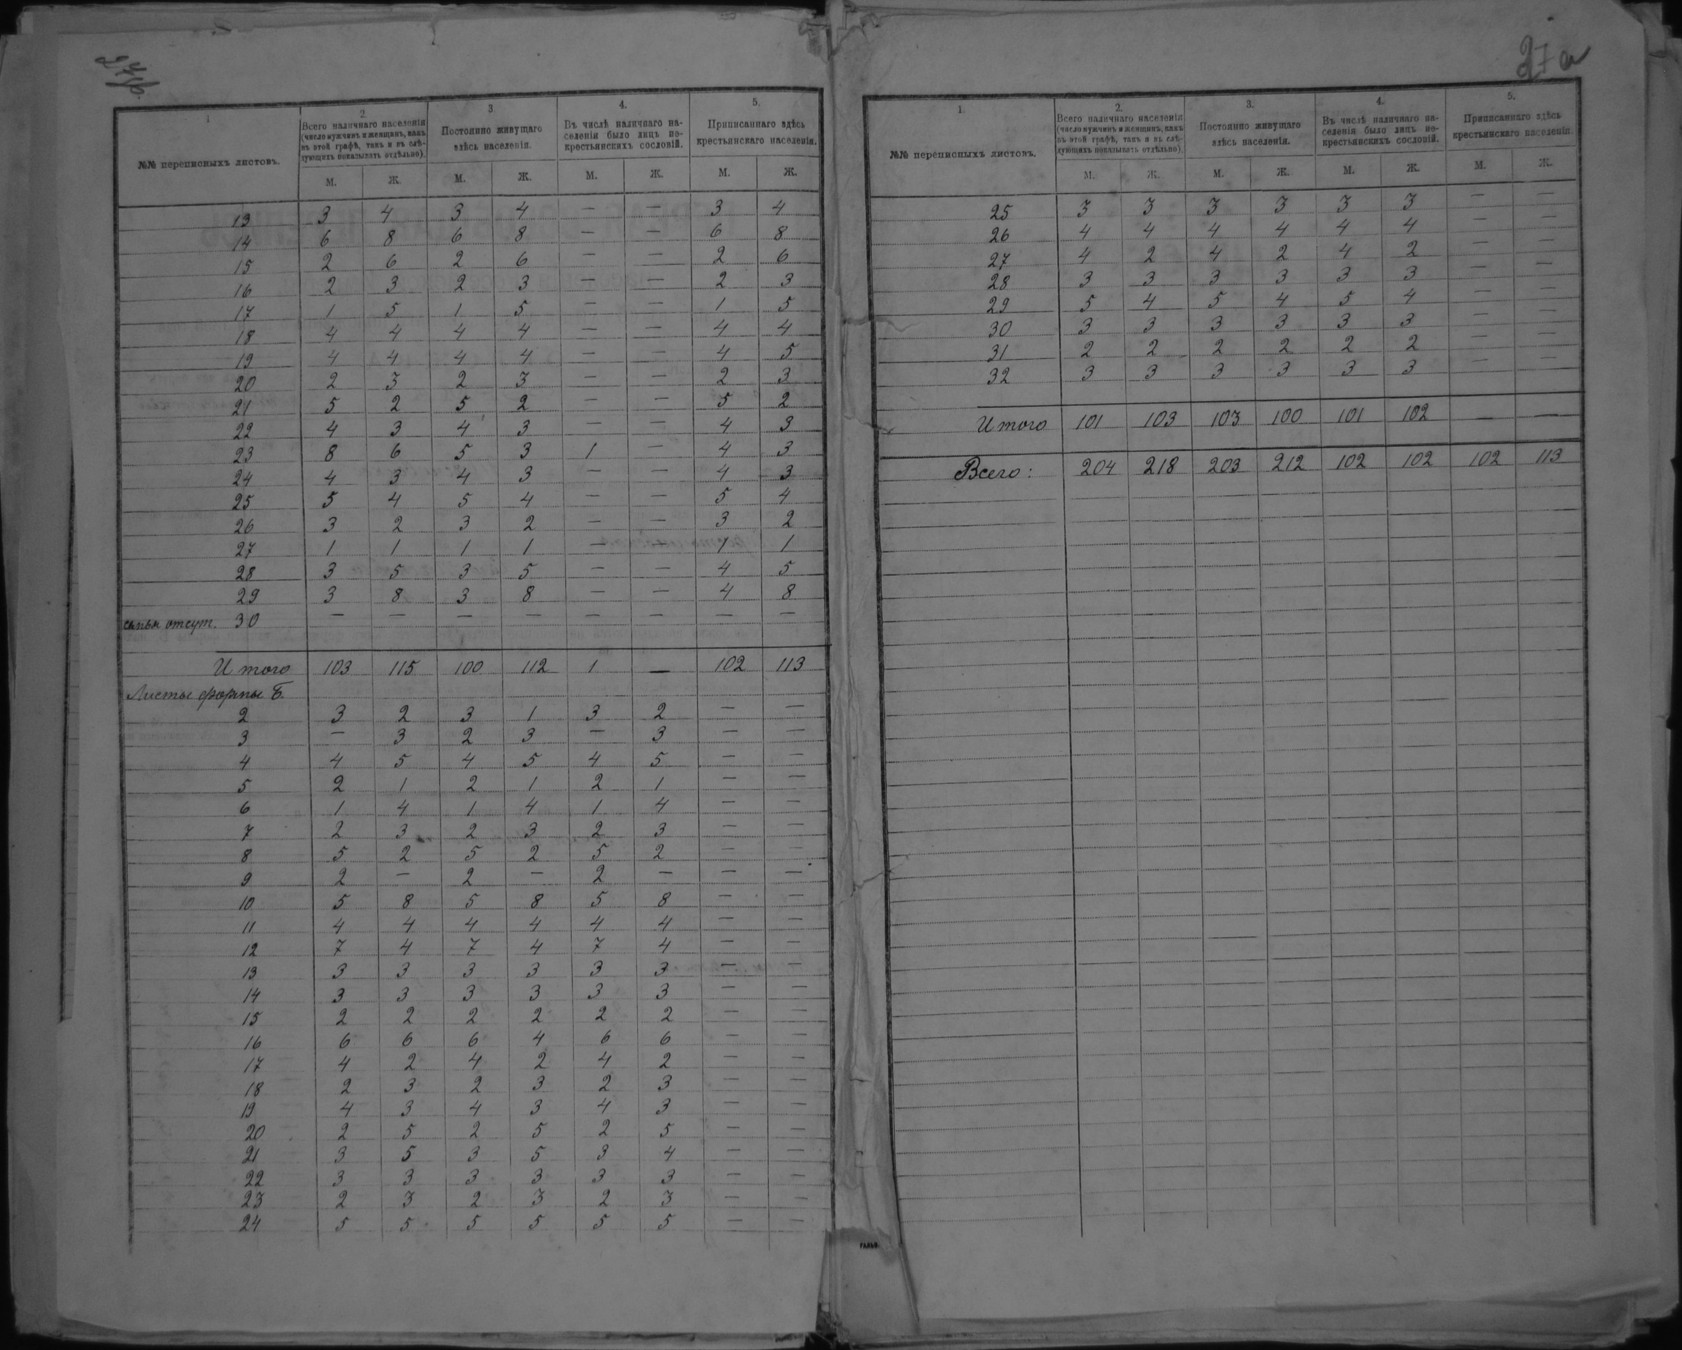 27а
1
2.
3.
4.
5.
№№ переписныхъ листовъ.
Всего наличнаго населенія
(число мужчинъ и женщинъ, какъ
въ этой графѣ, такъ и въ слѣ-
дующихъ показывать отдѣльно).
Постоянно живущаго
здѣсь населенія.
Въ числѣ наличнаго на-
селенія было лицъ не-
крестьянскихъ сословій.
Приписаннаго здѣсь
крестьянскаго населенія.
М. Ж. М. Ж. М. Ж. М. Ж.
13 3 4 3 4 — — 3 4
14 6 8 6 8 — — 6 8
15 2 6 2 6 — — 2 6
16 2 3 2 3 — — 2 3
17 1 5 1 5 — — 1 5
18 4 4 4 4 — — 4 4
19 4 4 4 4 — — 4 5
20 2 3 2 3 — — 2 3
21 5 2 5 2 — — 5 2
22 4 3 4 3 — — 4 3
23 8 6 5 3 1 — 4 3
24 4 3 4 3 — — 4 3
25 5 4 5 4 — — 5 4
26 3 2 3 2 — — 3 2
27 1 1 1 1 — — 1 1
28 3 5 3 5 — — 4 5
29 3 8 3 8 — — 4 8
отсут. 30 — — — — — — — —
Итого 103 115 100 112 1 — 102 113
Листы формы Б.
2 3 2 3 1 3 2 — —
3 — 3 2 3 — 3 — —
4 4 5 4 5 4 5 — —
5 2 1 2 1 2 1 — —
6 1 4 1 4 1 4 — —
7 2 3 2 3 2 3 — —
8 5 2 5 2 5 2 — —
9 2 — 2 — 2 — — —
10 5 8 5 8 5 8 — —
11 4 4 4 4 4 4 — —
12 7 4 7 4 7 4 — —
13 3 3 3 3 3 3 — —
14 3 3 3 3 3 3 — —
15 2 2 2 2 2 2 — —
16 6 6 6 4 6 6 — —
17 4 2 4 2 4 2 — —
18 2 3 2 3 2 3 — —
19 4 3 4 3 4 3 — —
20 2 5 2 5 2 5 — —
21 3 5 3 5 3 4 — —
22 3 3 3 3 3 3 — —
23 2 3 2 3 2 3 — —
24 5 5 5 5 5 5 — —
1.
2.
3.
4.
5.
№№ переписныхъ листовъ.
Всего наличнаго населенія
(число мужчинъ и женщинъ, какъ
въ этой графѣ, такъ и въ слѣ-
дующихъ показывать отдѣльно).
Постоянно живущаго
здѣсь населенія.
Въ числѣ наличнаго на-
селенія было лицъ не-
крестьянскихъ сословій.
Приписаннаго здѣсь
крестьянскаго населенія.
М. Ж. М. Ж. М. Ж. М. Ж.
25 3 3 3 3 3 3 — —
26 4 4 4 4 4 4 — —
27 4 2 4 2 4 2 — —
28 3 3 3 3 3 3 — —
29 5 4 5 4 5 4 — —
30 3 3 3 3 3 3 — —
31 2 2 2 2 2 2 — —
32 3 3 3 3 3 3 — —
Итого 101 103 103 100 101 102 — —
Всего: 204 218 203 212 102 102 102 113